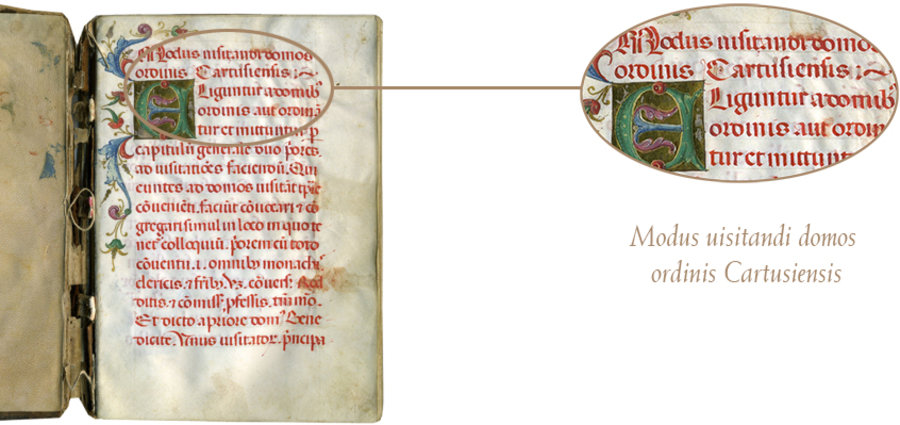 Modus uisitandi domos
ordinis Cartusiensis :~
Eliguntur a domibꝰ
ordinis aut ordinā
tur et mittuntur p̱
capitulū generale duo p̱ores.
ad uisitatiōes faciendū. Qui
euntes ad domos uisitāt
cōueniēti. faciūt cōuocari ⁊ cō
gregari simul in loco in quo te
net colloquiū. p̱orem cū toto
cōuentu .i. omnibꝰ monachi
clericis. ⁊ frībꝫ. vꝫ. cōuersis Red
ditis. ⁊ cōmiss. p̱fessis.
Et dicto a priore domꝰ Bene
dicite. Unus uisitator. p̱ncipa
Modus uisitandi domos
ordinis Cartusiensis :~
Eliguntur a domibꝰ
ordinis aut ordin
tur et mittunt
Modus uisitandi domos
ordinis Cartusiensis